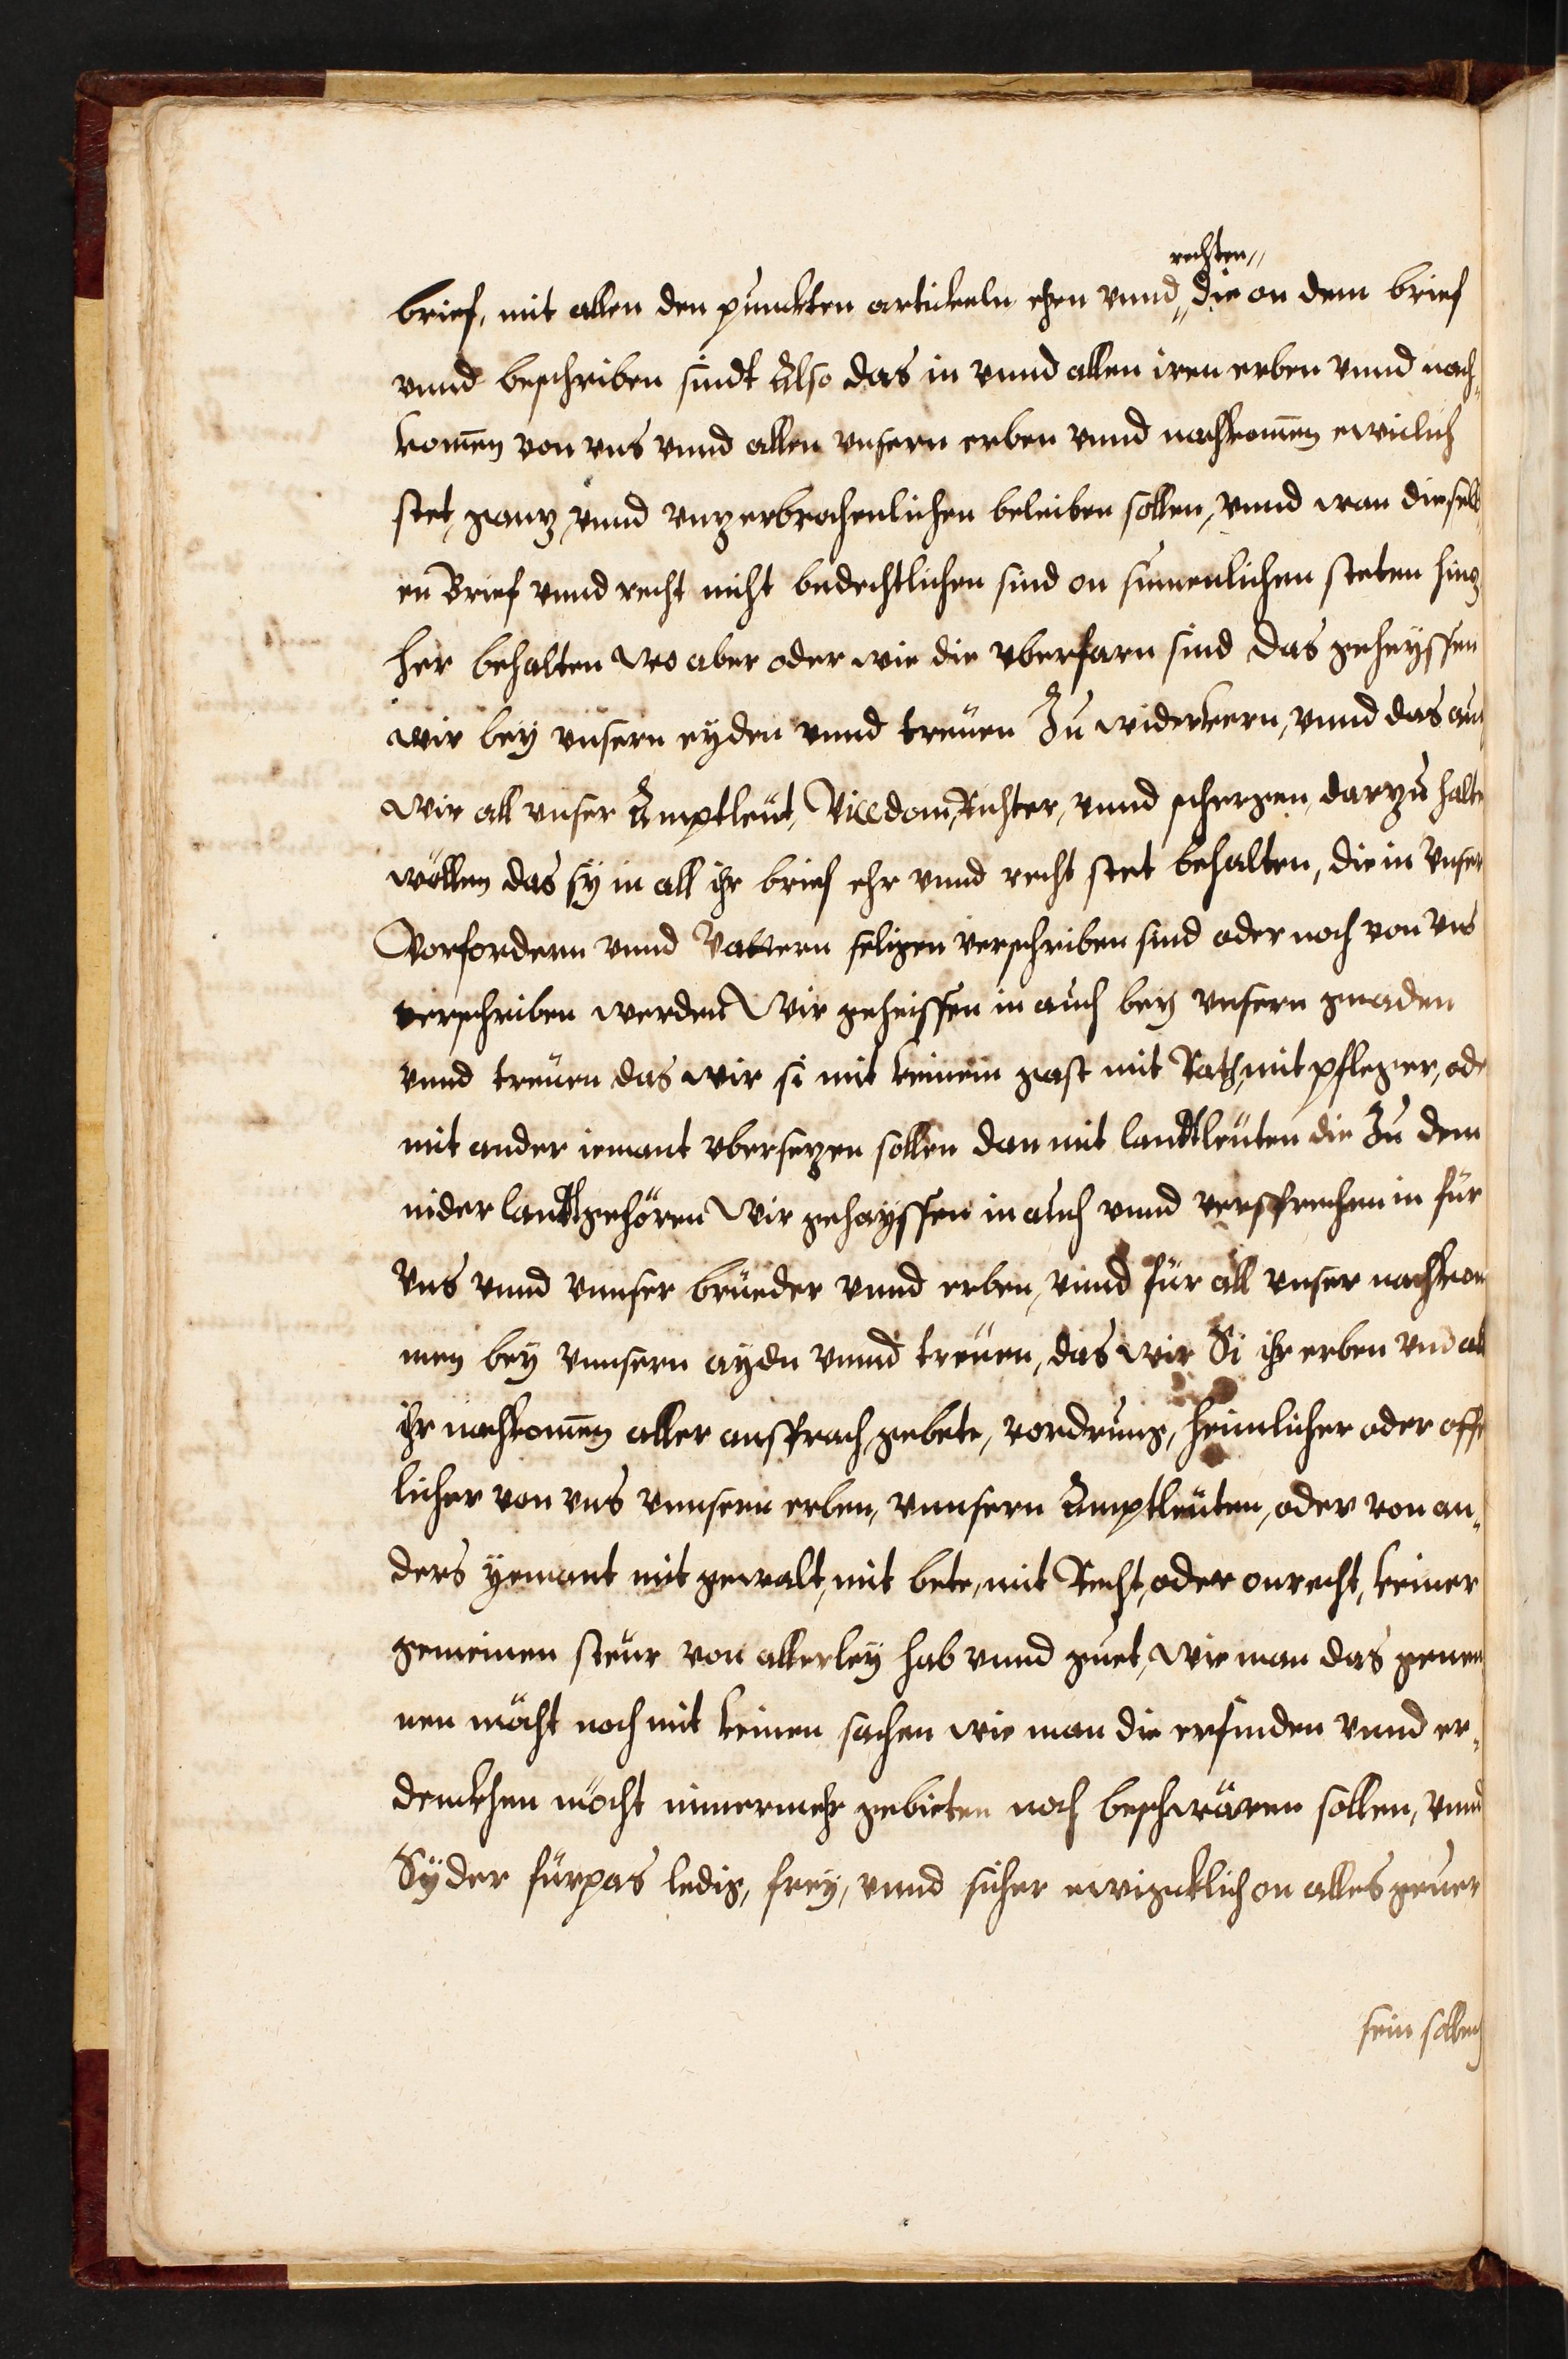 rechten
brief, mit allen den punckten artickeln ehen vnnd die on dem brief
vnnd beschriben sindt Also das in vnnd allen iren erben vnnd nach
komen von vns vnnd allen vnsern erben vnnd nachkomen ewiclich
stet, ganz, vnnd vnzerbrochenlichen beleiben sollen, vnnd wan dieselb
en Brief vnnd recht nicht bedechtlichen sind on sumenlichen steten hinz
her behalten wo aber oder wie die vberfarn sind das geheyssen
wir bey vnsern eyden vnnd treuen Zu widerkern, vnnd das auch
wir all vnser Amptleut, Vicedom, Richter, vnnd schergen, darzu halte
wöllen das sy in all ihr brief ehr vnnd recht stet behalten, die in Vnser
Vorfordern vnnd Vattern seligen verschriben sind oder noch von vns
verschriben werden Wir geheissen in auch bey vnsern gnaden
vnnd treuen das wir si mit keinem gast mit Rath, mit pfleger, ode
mit ander iemant vbersezen sollen dan mit landtleuten die Zu dem
niderlandt gehören Wir gehayssen in auch vnnd versprechen in für
Vns vnnd vnnser brueder vnnd erben, vnnd für all vnser nachkom
men bey vnnsern aydn vnnd treuen, das wir Si ihr erben vnd all
ihr nachkomen aller ansprach, gebete, vordrung, heimlicher oder offe
licher von vns vnnsern erben, vnnsern Amptleuten, oder von an,
ders yemant mit gewalt, mit bete, mit Recht, oder onrecht, keiner
gemeinen steur von allerley hab vnnd guet, wie man das genen
nen möcht noch mit keinen sachen wie man die erfinden vnnd er,
denckhen möcht nimermehr gebieten noch beschwären sollen, vnnd
Syder fürpas ledig, frey, vnnd sicher ewigcklich on alles geuer
sein sollen